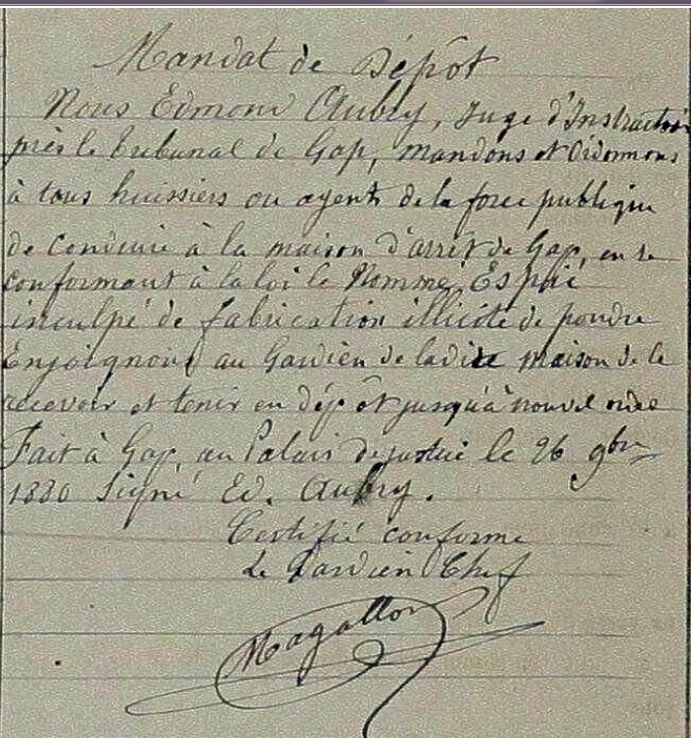 Mandat de Dépôt
Nous Edmond Aubry, Juge d'Instruction
près le tribunal de Gap, mandons et Ordonnons
à tous huissiers ou agents de la force publique
de Conduire à la maison d'arrêt de Gap, en se
conformant à la loi le Nommé, Espié
inculpé de fabrication illicite de poudre
Enjoignons au Gardien de ladite maison de le
recevoir et tenir en dépôt jusqu'à nouvel ordre
Fait à Gap, au Palais de justice le 26 9bre
1880 Signé Ed. Aubry.
Certifié conforme
Le Gardien Chef
Magallon